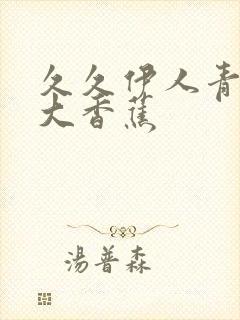 久久伊人青
大香蕉
湯普森